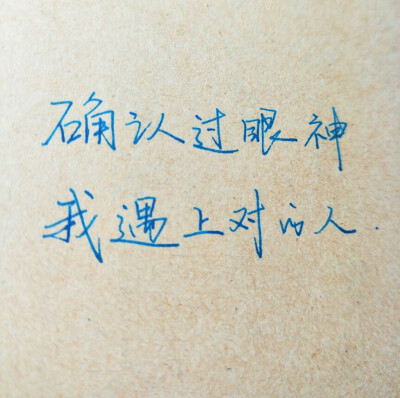 确认过眼神
我遇上对的人.